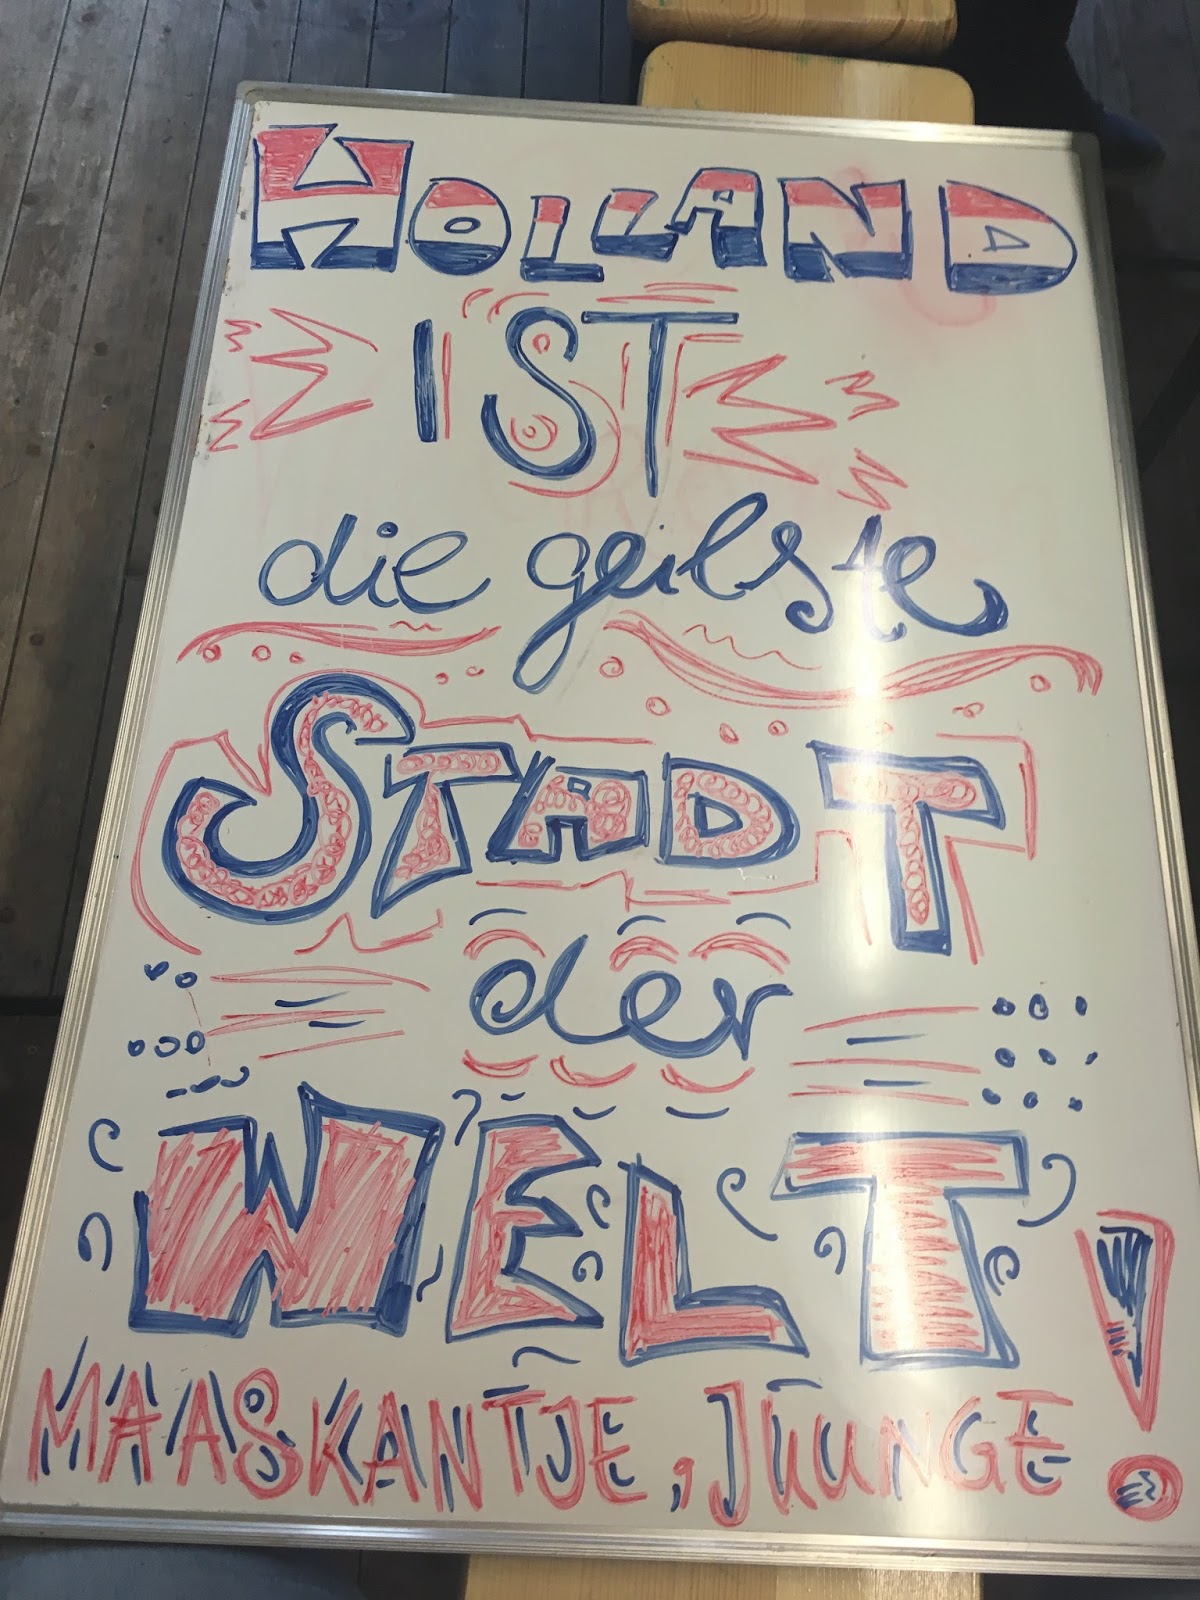 HOLLAND
IST
die geilste
STADT
der
WELT!
MAASKANTJE, JUUNGE